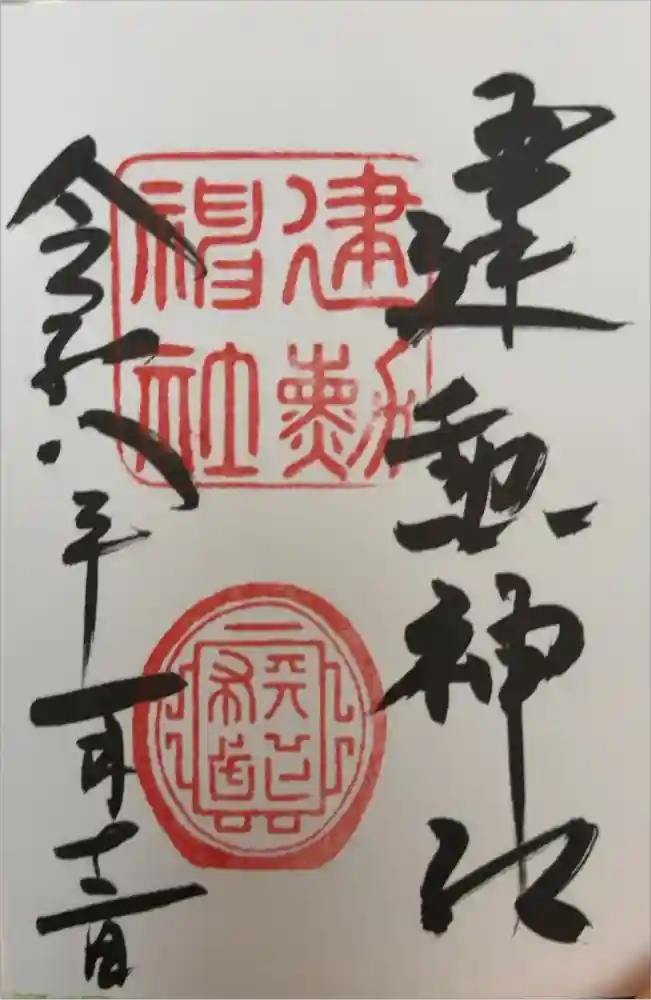 建勲神社
建勲
神社
天下
布武
令和八年一月十二日